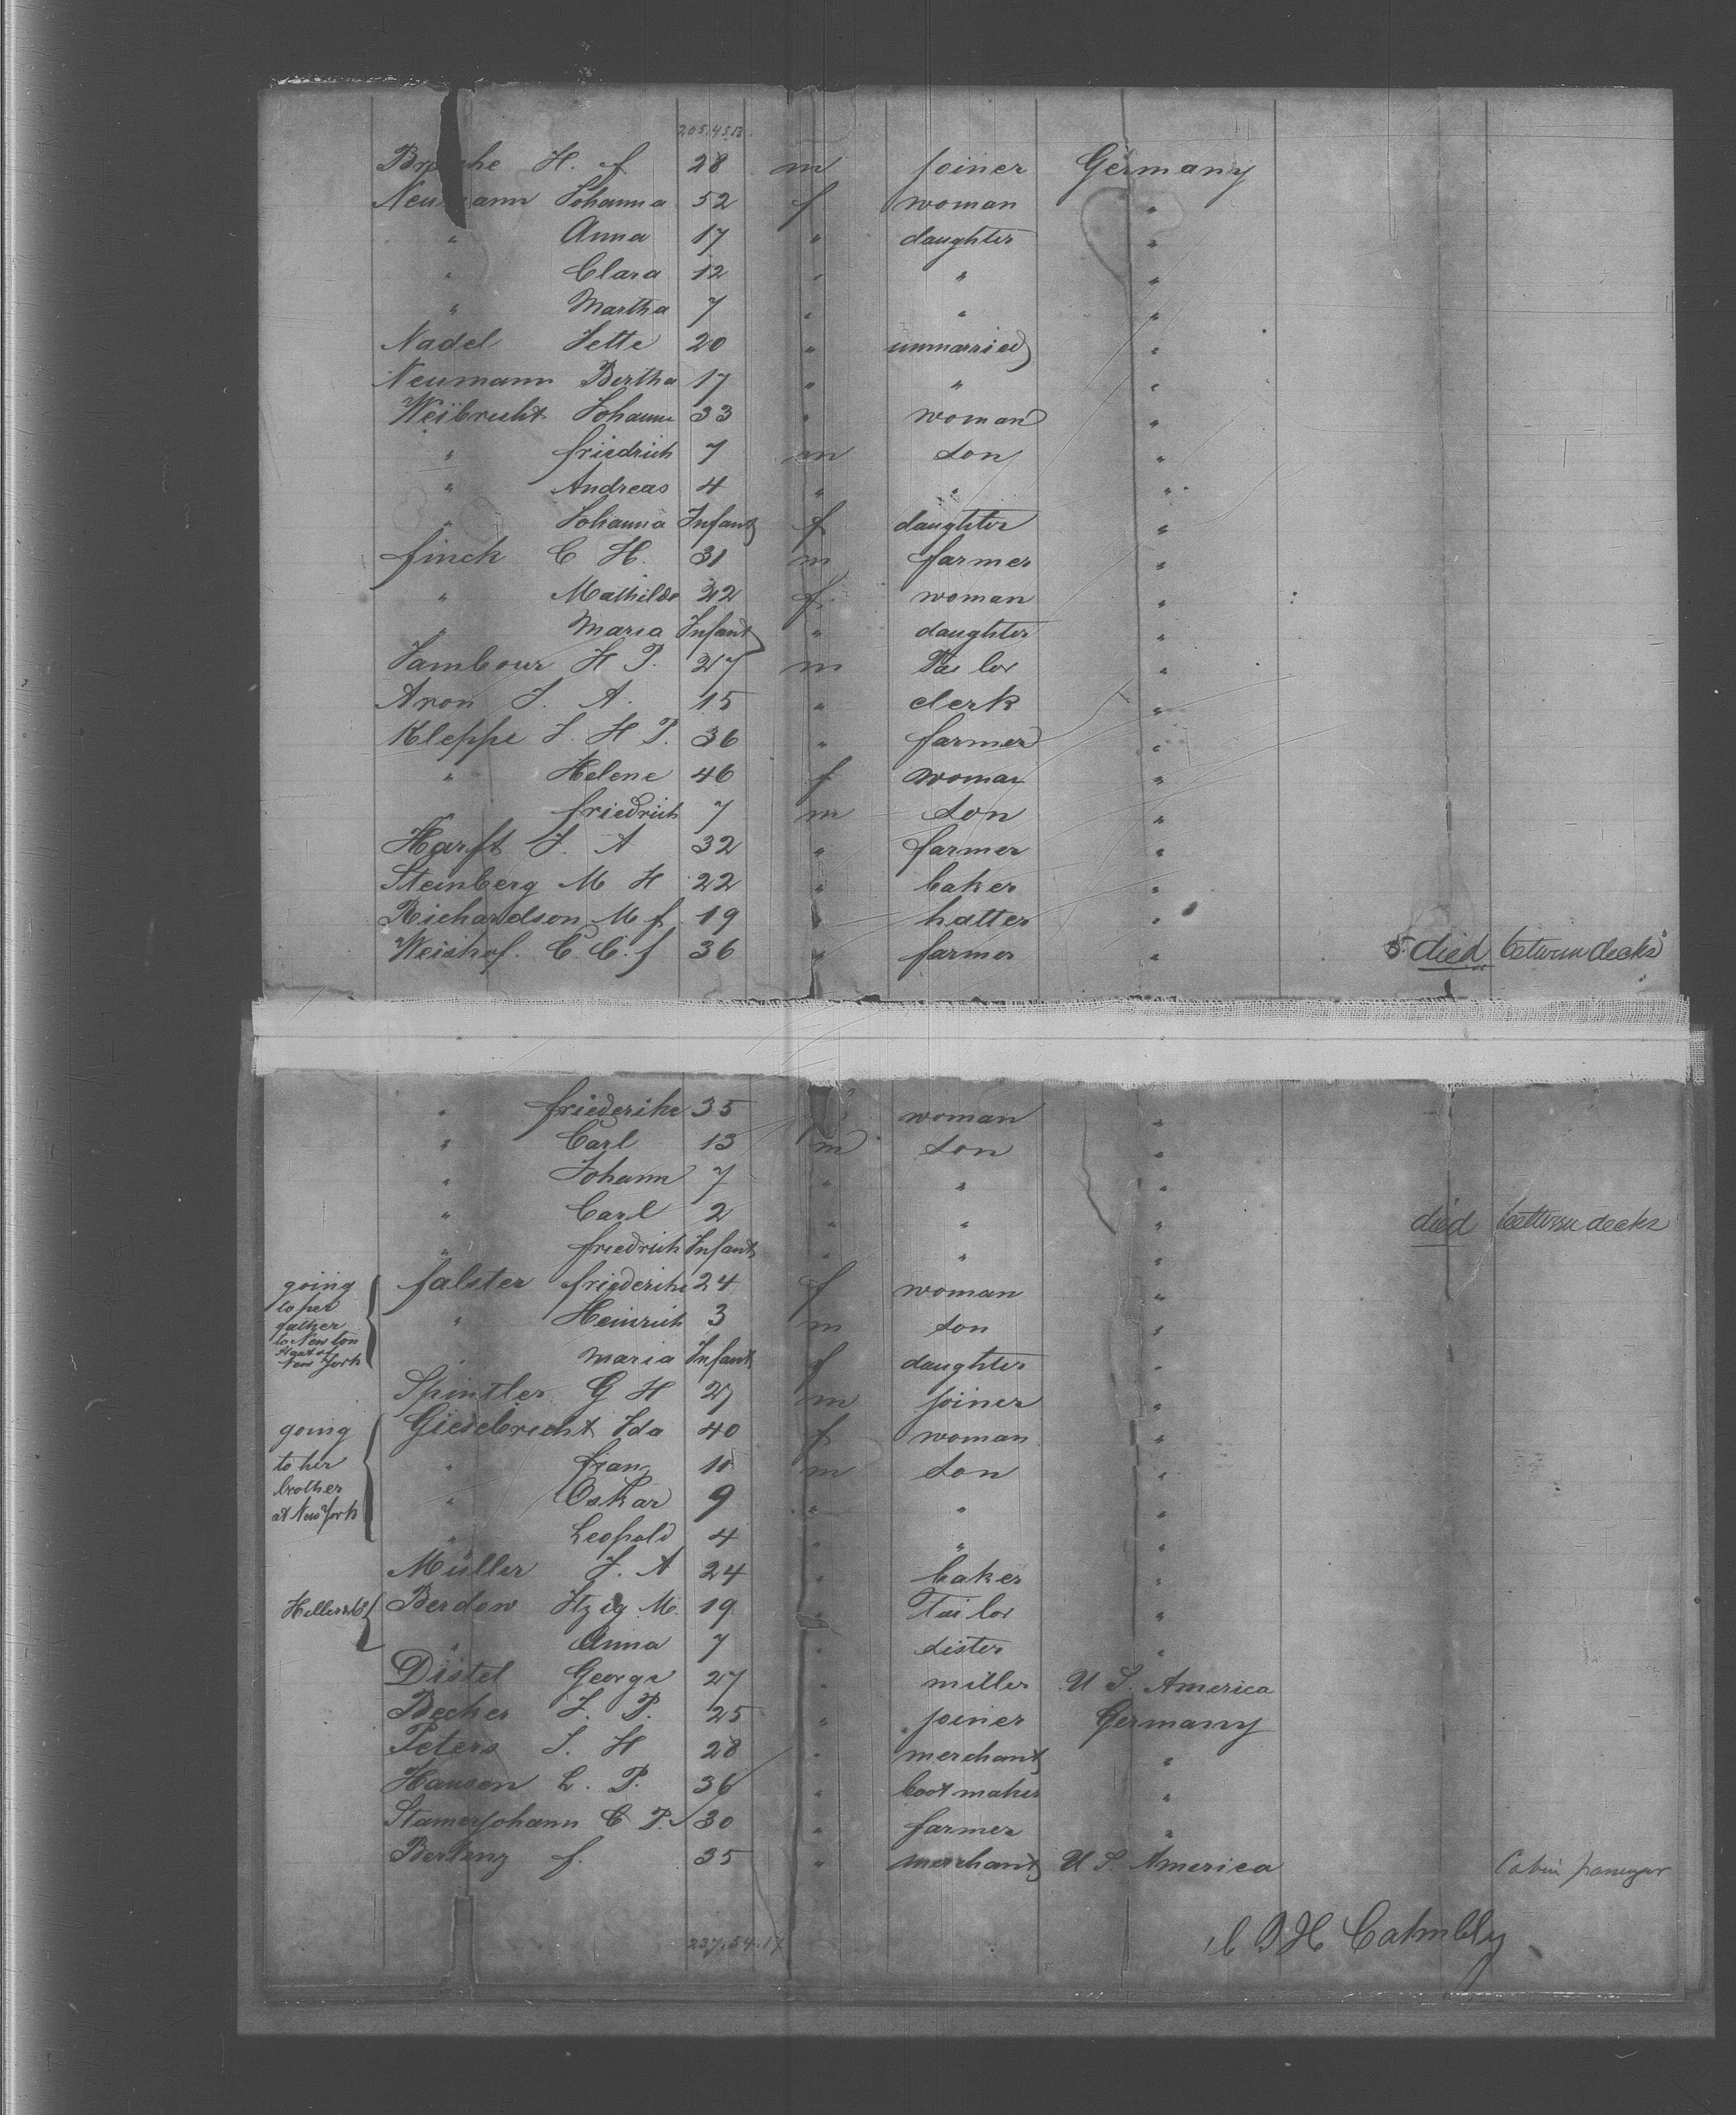 205.45.13.
H. f 28 m joiner Germany
Neumann Johanna 52 f woman "
" Anna 17 " daughter "
" Clara 12 " " "
" Martha 7 " " "
Nadel Jette 20 " unmarried "
Neumann Bertha 17 " " "
Weibrecht Johanne 33 " woman "
" friedrich 7 m son "
" Andreas 4 " " "
" Johanna Infant f daughter "
finck C H. 31 m farmer "
" Mathilde 22 f. woman "
" Maria Infant " daughter "
Jambour H P. 27 m Tailor "
Aron J. A. 15 " clerk "
Kleppe J. H P. 36 " farmer "
" Helene 46 f woman "
" friedrich 7 m son "
Harft J. A 32 " farmer "
Steinberg M H 22 " baker "
Richardson M f. 19 " hatter "
C. C. f 36 " farmer " died between decks
" friederike 35 woman "
" Carl 13 m son "
" Johann 7 " " "
" Carl 2 " " " died between decks
" friedrich Infant " " "
going falster friederike 24 f woman "
to her
father " Heinrich 3 m son "
to Newton
New York " Maria Infant f daughter "
Spintler G H 27 m joiner "
going Giesebrecht Ida 40 f woman "
to her " fran 10 m son "
brother " Oskar 9 " " "
at New York
" Leopold 4 " " "
Müller J. A 24 " baker "
Berdow Itzig M. 19 " Tailor "
" Anna 7 " sister "
Distel George 27 " miller U S. America
Becker J. P. 25 " joiner Germany
Peters J. H 28 " merchant "
Hansen L. P. 36 " boot maker "
Stamerjohann C P. 30 " farmer "
f. 35 " merchant U S. America Cabin passenger
237.54.17